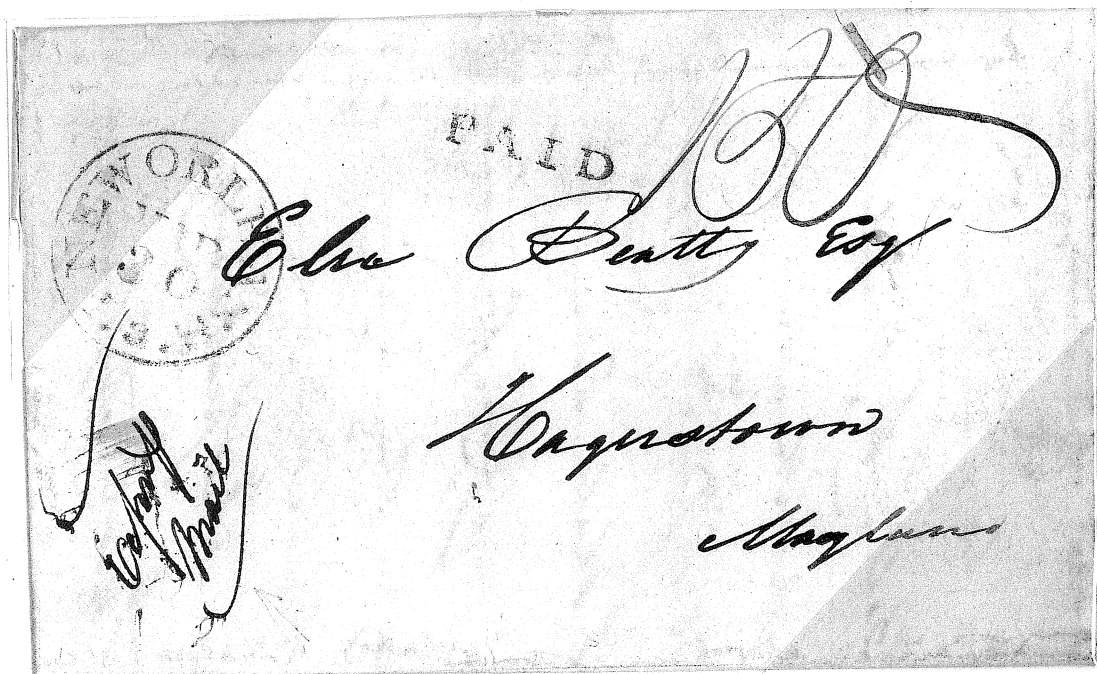 PAID
150
NEW ORLEANS
30
LA.
Elie Beatty Esq
Hagerstown
Maryland
Express
Mail